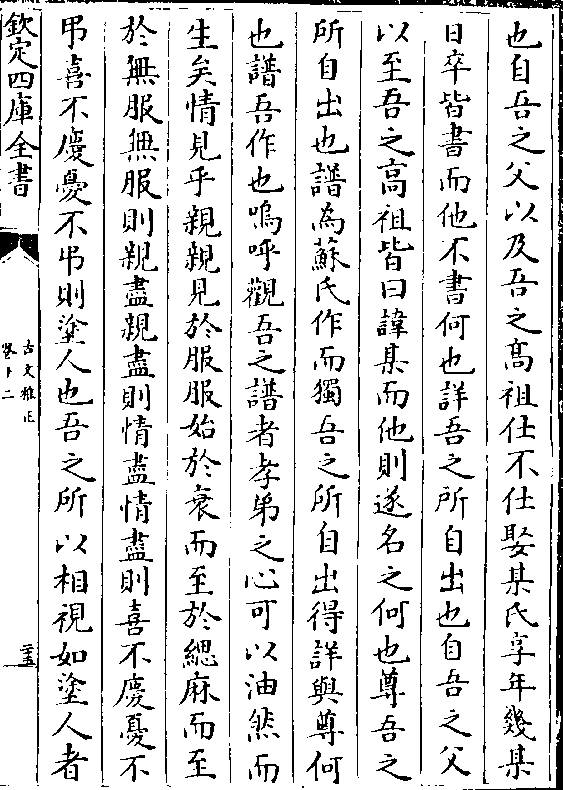 也自吾之父以及吾之髙祖仕不仕娶某氏享年幾某
日卒皆書而他不書何也詳吾之所自出也自吾之父
以至吾之髙祖皆曰諱某而他則遂名之何也尊吾之
所自出也譜為蘇氏作而獨吾之所自出得詳與尊何
也譜吾作也嗚呼觀吾之譜者孝弟之心可以油然而
生矣情見乎親親見於服服始於衰而至於緦麻而至
於無服無服則親盡親盡則情盡情盡則喜不慶憂不
弔喜不慶憂不弔則塗人也吾之所以相視如塗人者
欽定四庫全書
古文雅正
卷十二
二十五